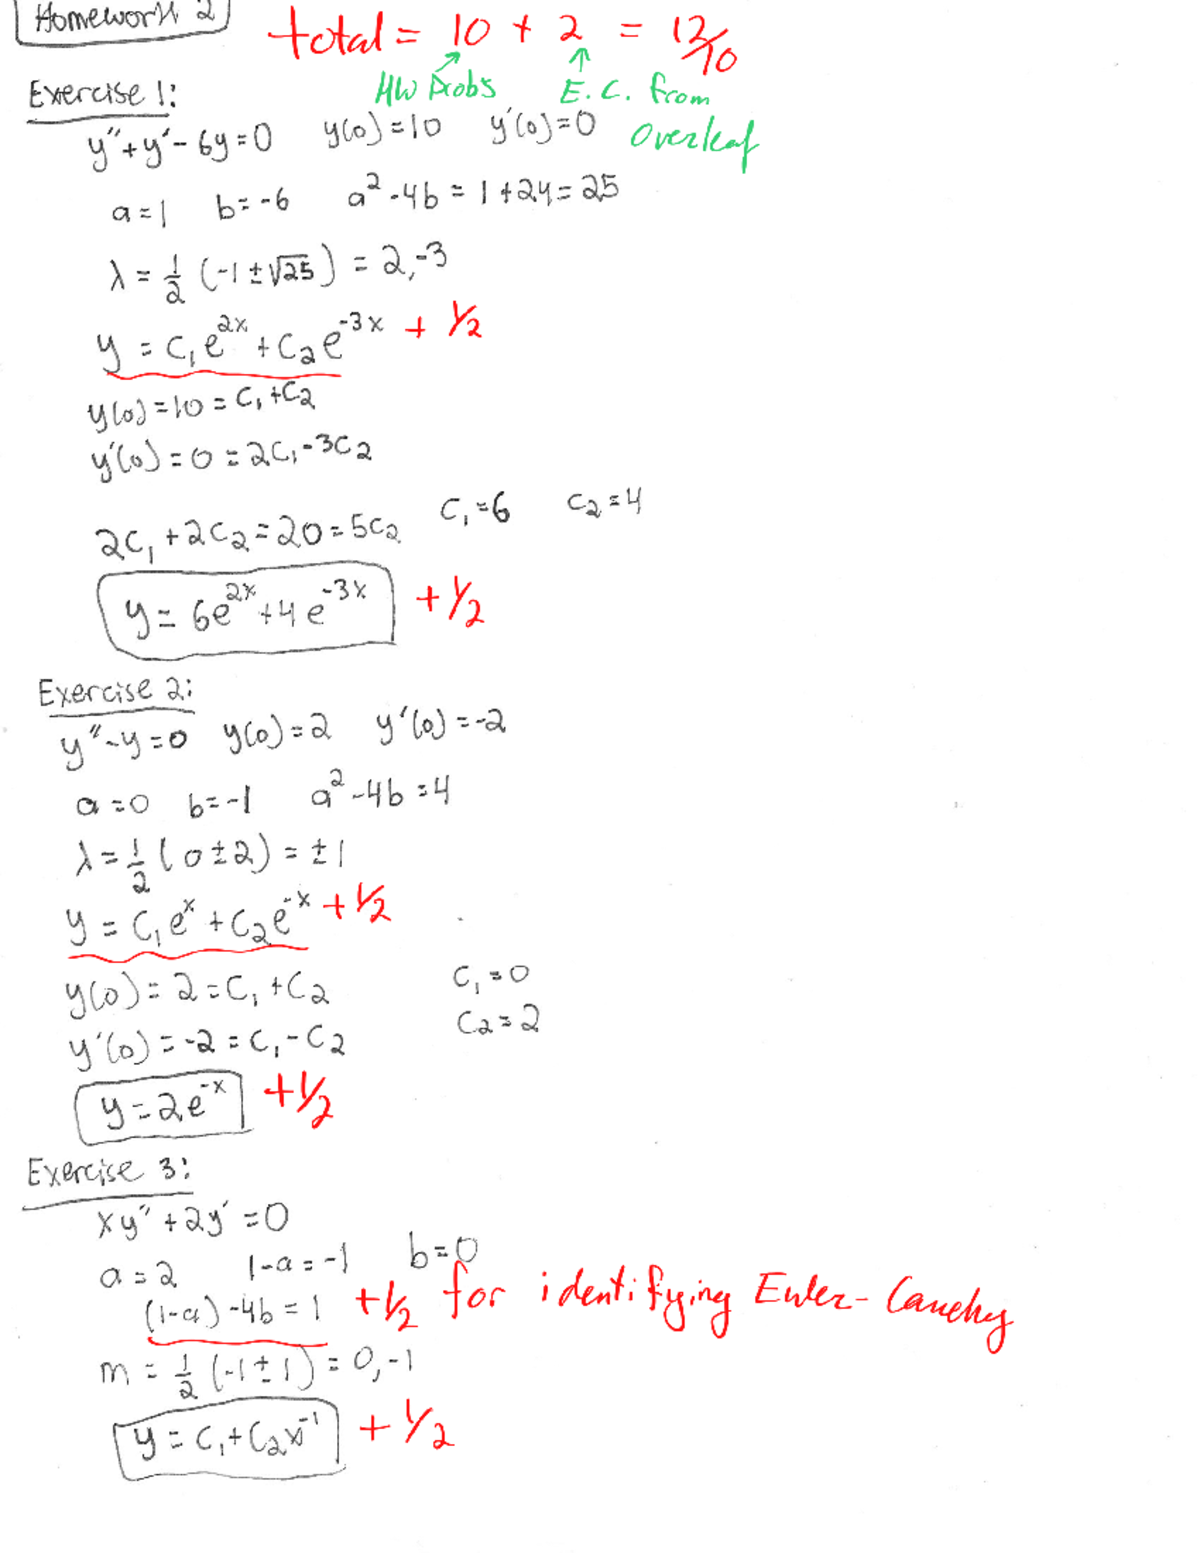 Homework 2
total = 10 + 2 = 12/10
HW Probs E.C. from Overleaf
Exercise 1:
y″+y′-6y=0 y(0)=10 y′(0)=0
a=1 b=-6 a²-4b = 1+24=25
λ = 1/2 (-1±√25) = 2,-3
y = C₁e^2x + C₂e^-3x + 1/2
y(0)=10=C₁+C₂
y′(0)=0=2C₁-3C₂
2C₁+2C₂=20=5C₂ C₁=6 C₂=4
y=6e^2x+4e^-3x +1/2
Exercise 2:
y″-y=0 y(0)=2 y′(0)=-2
a=0 b=-1 a²-4b=4
λ=1/2(0±2)=±1
y=C₁e^x+C₂e^-x +1/2
y(0)=2=C₁+C₂ C₁=0
y′(0)=-2=C₁-C₂ C₂=2
y=2e^-x +1/2
Exercise 3:
xy″+2y′=0
a=2 1-a=-1 b=0
(1-a)-4b=1 +1/2 for identifying Euler-Cauchy
m=1/2(-1±1)=0,-1
y=C₁+C₂x^-1 +1/2